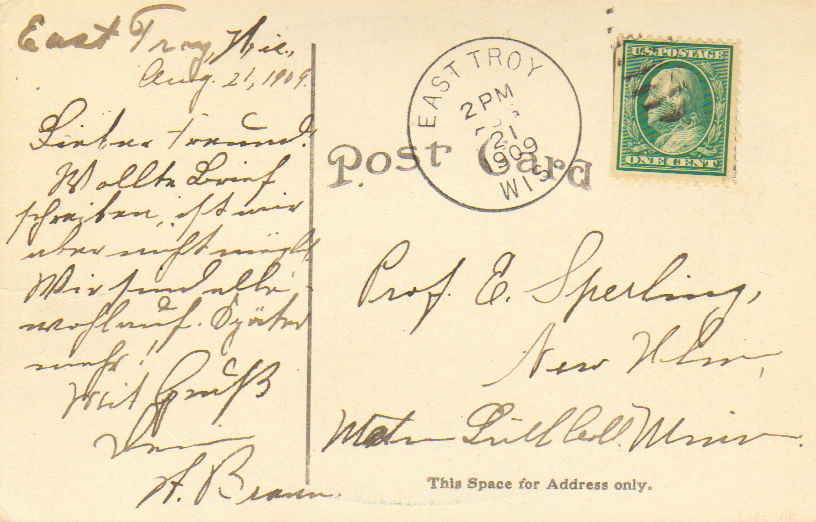 East Troy, Wis,
Aug. 21, 1909.
Lieber Freund!
Wollte Brief
schreiben, ist mir
aber nicht möglich
Wir sind alle
wohlauf. Später
mehr!
Mit Gruß
Dein
A. Braun.
Post Card
EAST TROY
2 PM
21
1909
WIS
U.S. POSTAGE
ONE CENT
Prof. E. Sperling,
New Ulm,
Luth Coll. Minn.
This Space for Address only.